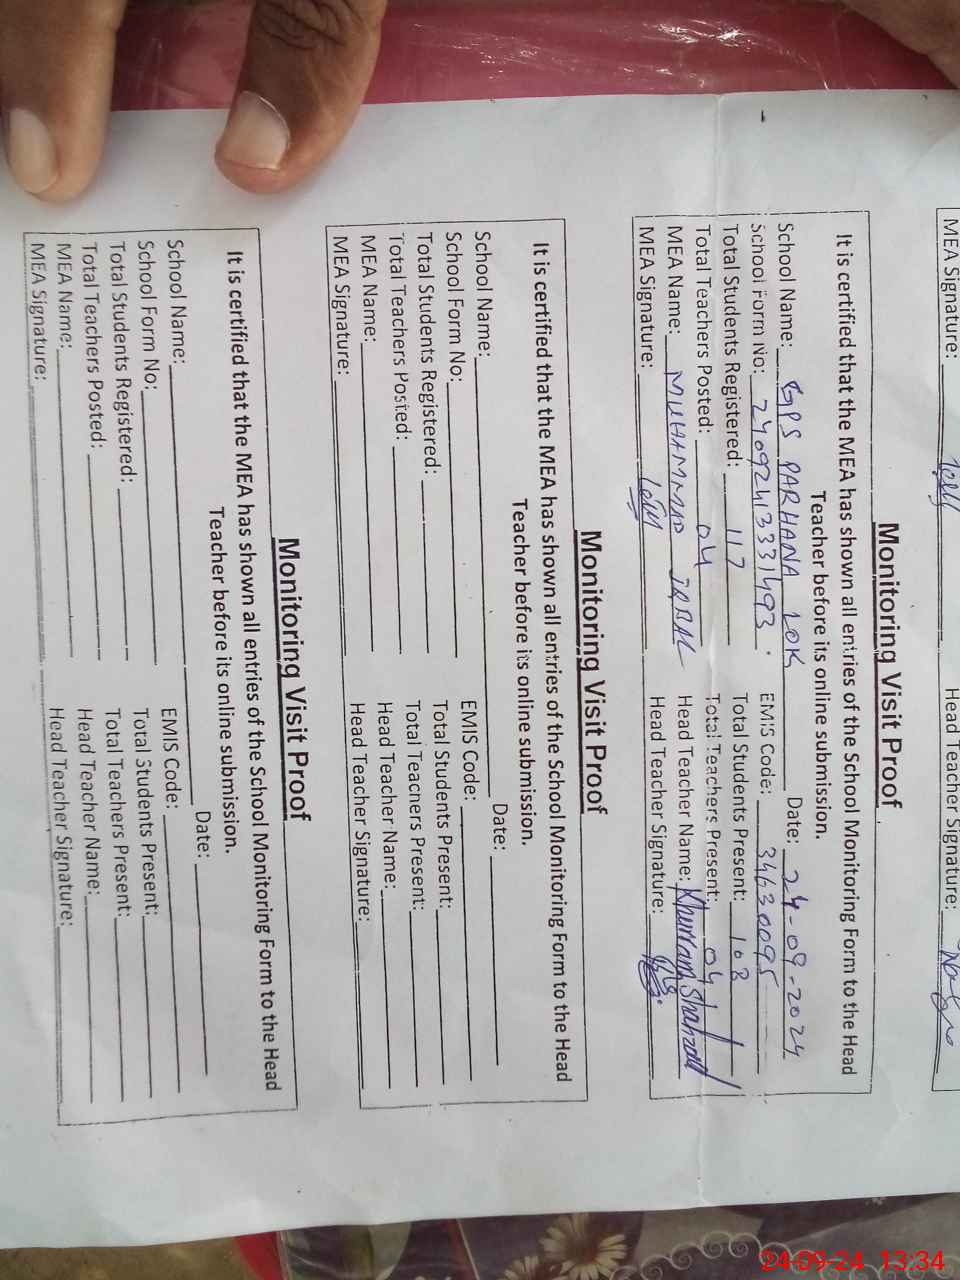 MEA Signature: Head Teacher Signature:
Monitoring Visit Proof
It is certified that the MEA has shown all entries of the School Monitoring Form to the Head
Teacher before its online submission.
School Name: GPS PARHANA LOK Date: 24-09-2024
School Form No: 240924133331493. EMIS Code: 34630095
Total Students Registered: 117 Total Students Present: 108
Total Teachers Posted: 04 Total Teachers Present: 04
MEA Name: MUHAMMAD IQBAL Head Teacher Name: Khurram Shahzad
MEA Signature: Head Teacher Signature:
Monitoring Visit Proof
It is certified that the MEA has shown all entries of the School Monitoring Form to the Head
Teacher before its online submission.
School Name: Date:
School Form No: EMIS Code:
Total Students Registered: Total Students Present:
Total Teachers Posted: Total Teachers Present:
MEA Name: Head Teacher Name:
MEA Signature: Head Teacher Signature:
Monitoring Visit Proof
It is certified that the MEA has shown all entries of the School Monitoring Form to the Head
Teacher before its online submission.
School Name: Date:
School Form No: EMIS Code:
Total Students Registered: Total Students Present:
Total Teachers Posted: Total Teachers Present:
MEA Name: Head Teacher Name:
MEA Signature: Head Teacher Signature:
24-09-24 13:34